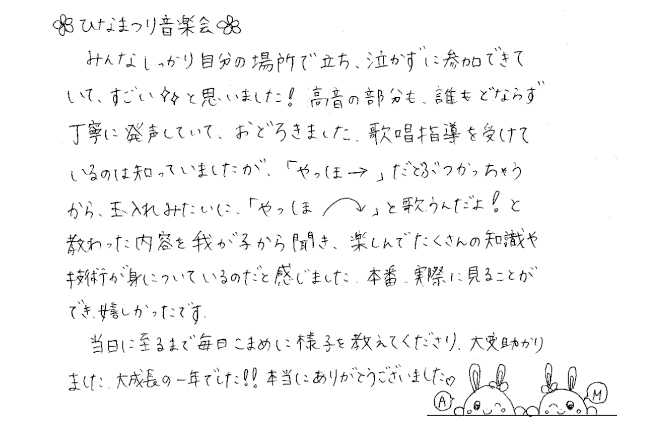 ひなまつり音楽会
みんなしっかり自分の場所で立ち、泣かずに参加できて
いて、すごい✨と思いました！高音の部分も、誰もどならず
丁寧に発声していて、おどろきました。歌唱指導を受けて
いるのは知っていましたが、「やっほ→」だとぶつかっちゃう
から、玉入れみたいに、「やっほ⤵」と歌うんだよ！と
教わった内容を我が子から聞き、楽しんでたくさんの知識や
技術が身についているのだと感じました。本番、実際に見ることが
でき、嬉しかったです。
当日に至るまで毎日こまめに様子を教えてくださり、大変助かり
ました。大成長の一年でした!!本当にありがとうございました♡
A M